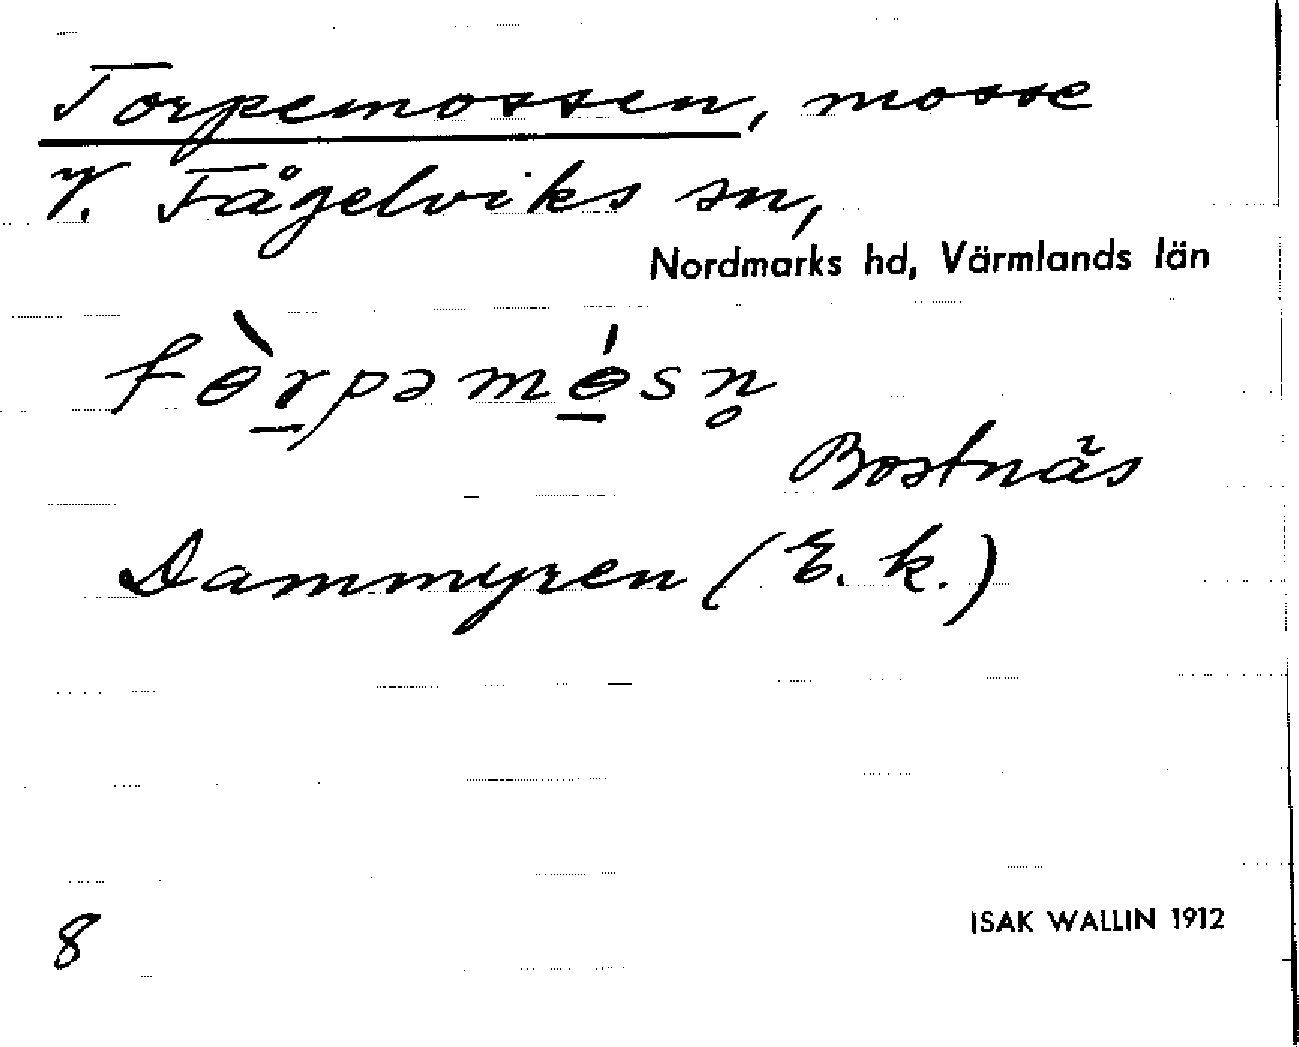 Torpemossen, mosse
V. Fågelviks sn,
Nordmarks hd, Värmlands län
tɵ̀r̲pəmɵ̲́sn̥
Bostnäs
Dammyren (E. k.)
8
ISAK WALLIN 1912